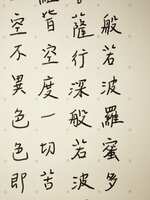 般若波羅蜜多
薩行深般若波
皆空度一切苦
空不異色色即